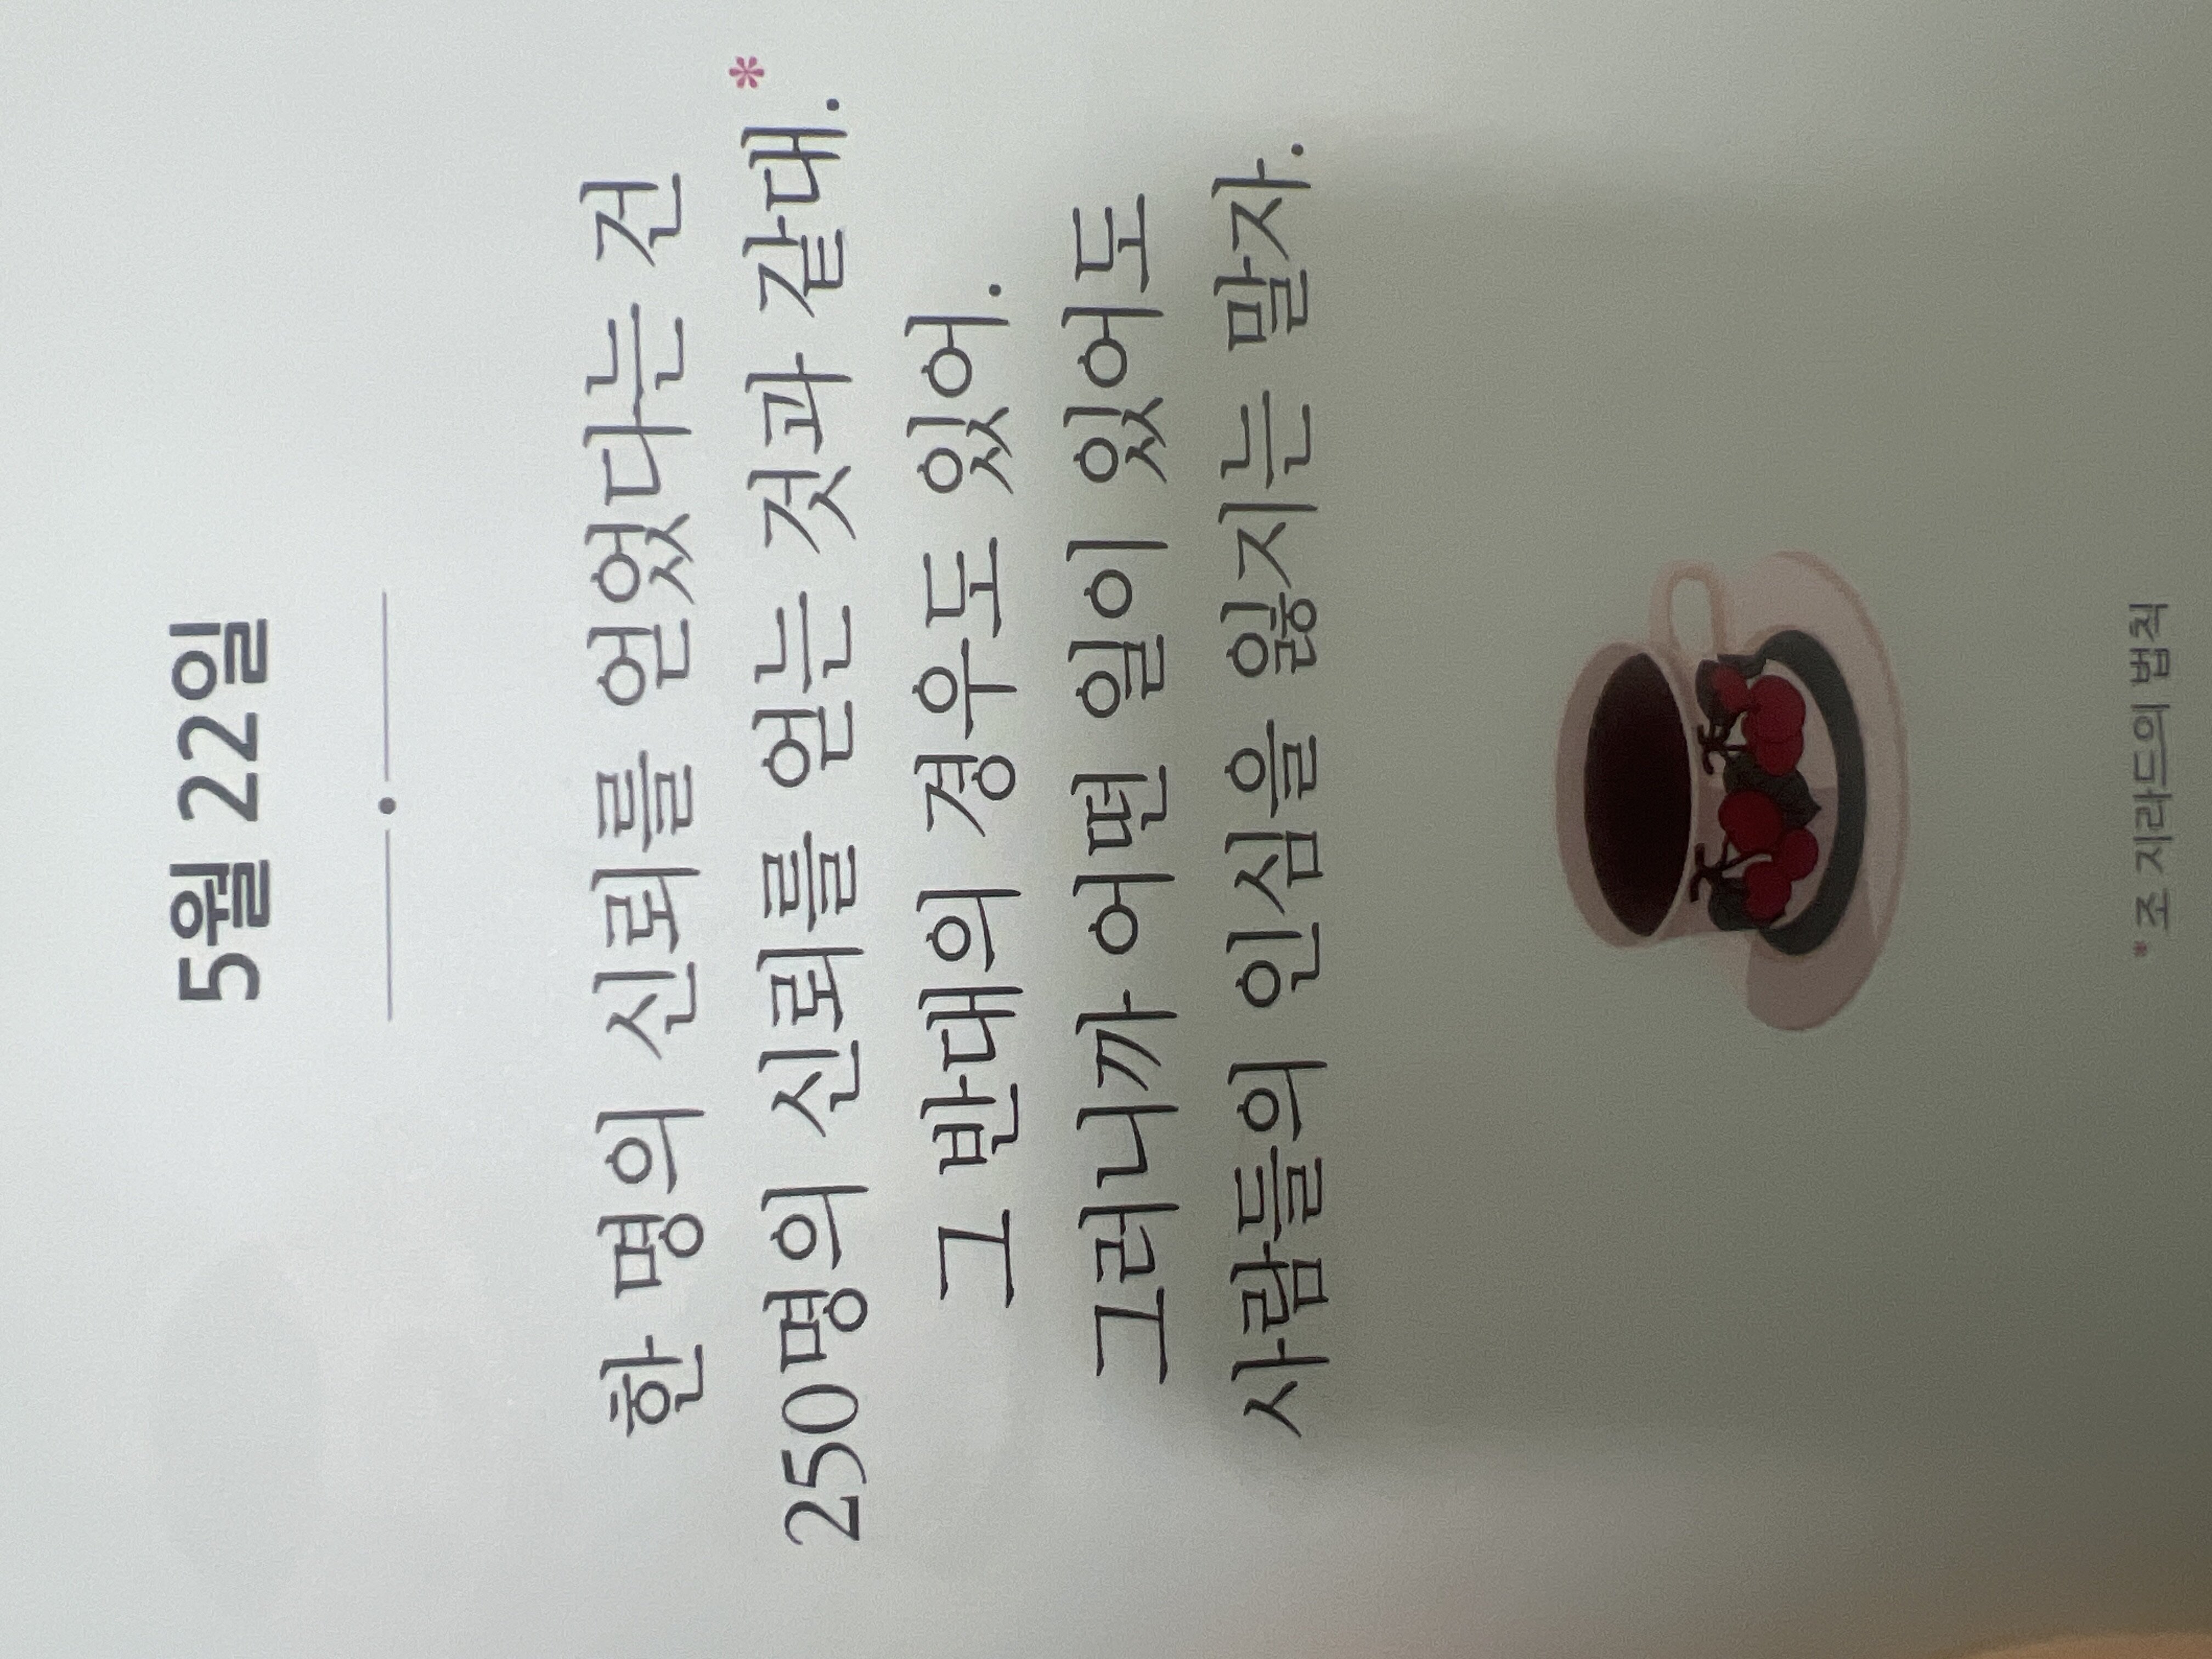 5월 22일
한 명의 신뢰를 얻었다는 건
250명의 신뢰를 얻는 것과 같대.*
그 반대의 경우도 있어.
그러니까 어떤 일이 있어도
사람들의 인심을 잃지는 말자.
* 조 지라드의 법칙